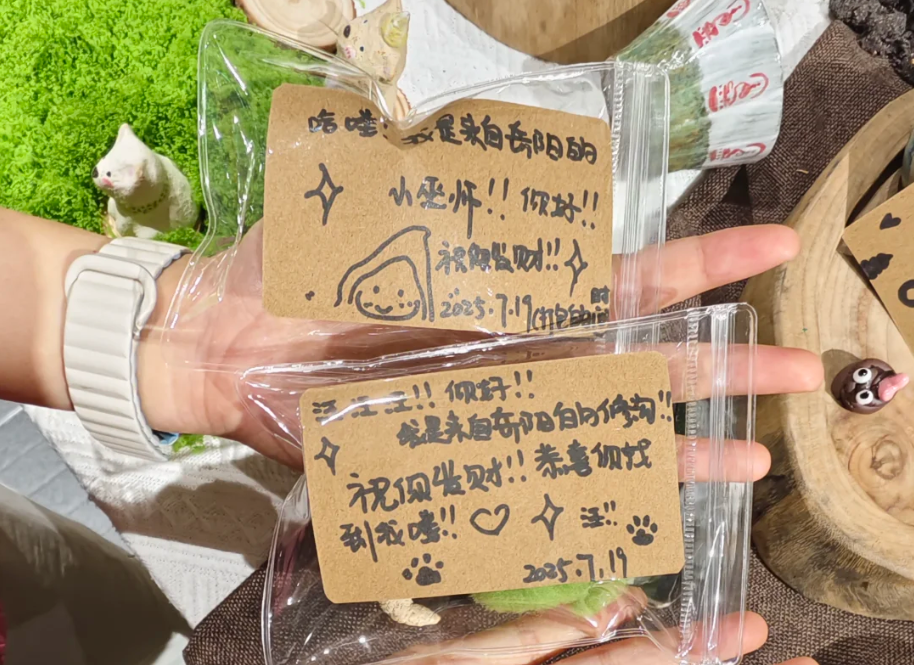 哈喽！我是来自岳阳的
小巫师!! 你好!!
祝你发财!!
2025.7.19
汪汪汪!! 你好!!
我是来自岳阳的修狗!!
祝你发财!! 恭喜你找
到我喽!! 汪!!
2025.7.19